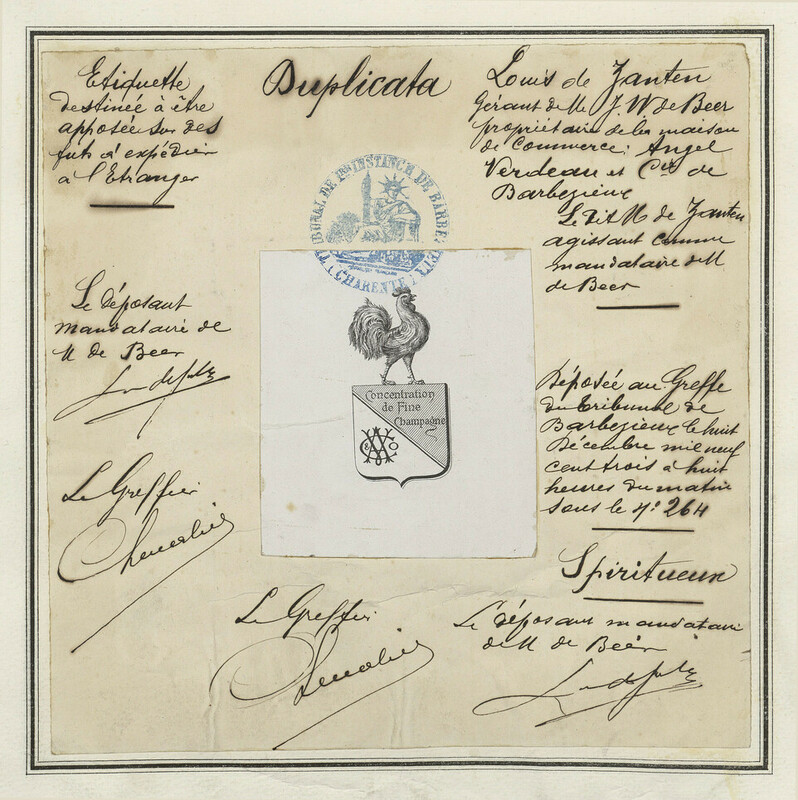 Duplicata
Etiquette
destinée à être
apposée sur des
futs à expédier
à l'Etranger
Louis de Zanten
Gérant de M J. W. de Beer
propriétaire de la maison
de Commerce: Angel
Verdeau et Cie de
Barbezieux
Le dit M de Zanten
agissant comme
mandataire de M
de Beer
TRIBUNAL DE 1ère INSTANCE DE BARBEZIEUX
(CHARENTE)
Le déposant
mandataire de
M de Beer
Concentration
de Fine
Champagne
Déposée au Greffe
du tribunal de
Barbezieux le huit
Décembre mil neuf
cent trois à huit
heures du matin
sous le N° 264
Le Greffier
Chevalier
Spiritueux
Le Greffier
Chevalier
Le déposant mandataire
de M de Beer